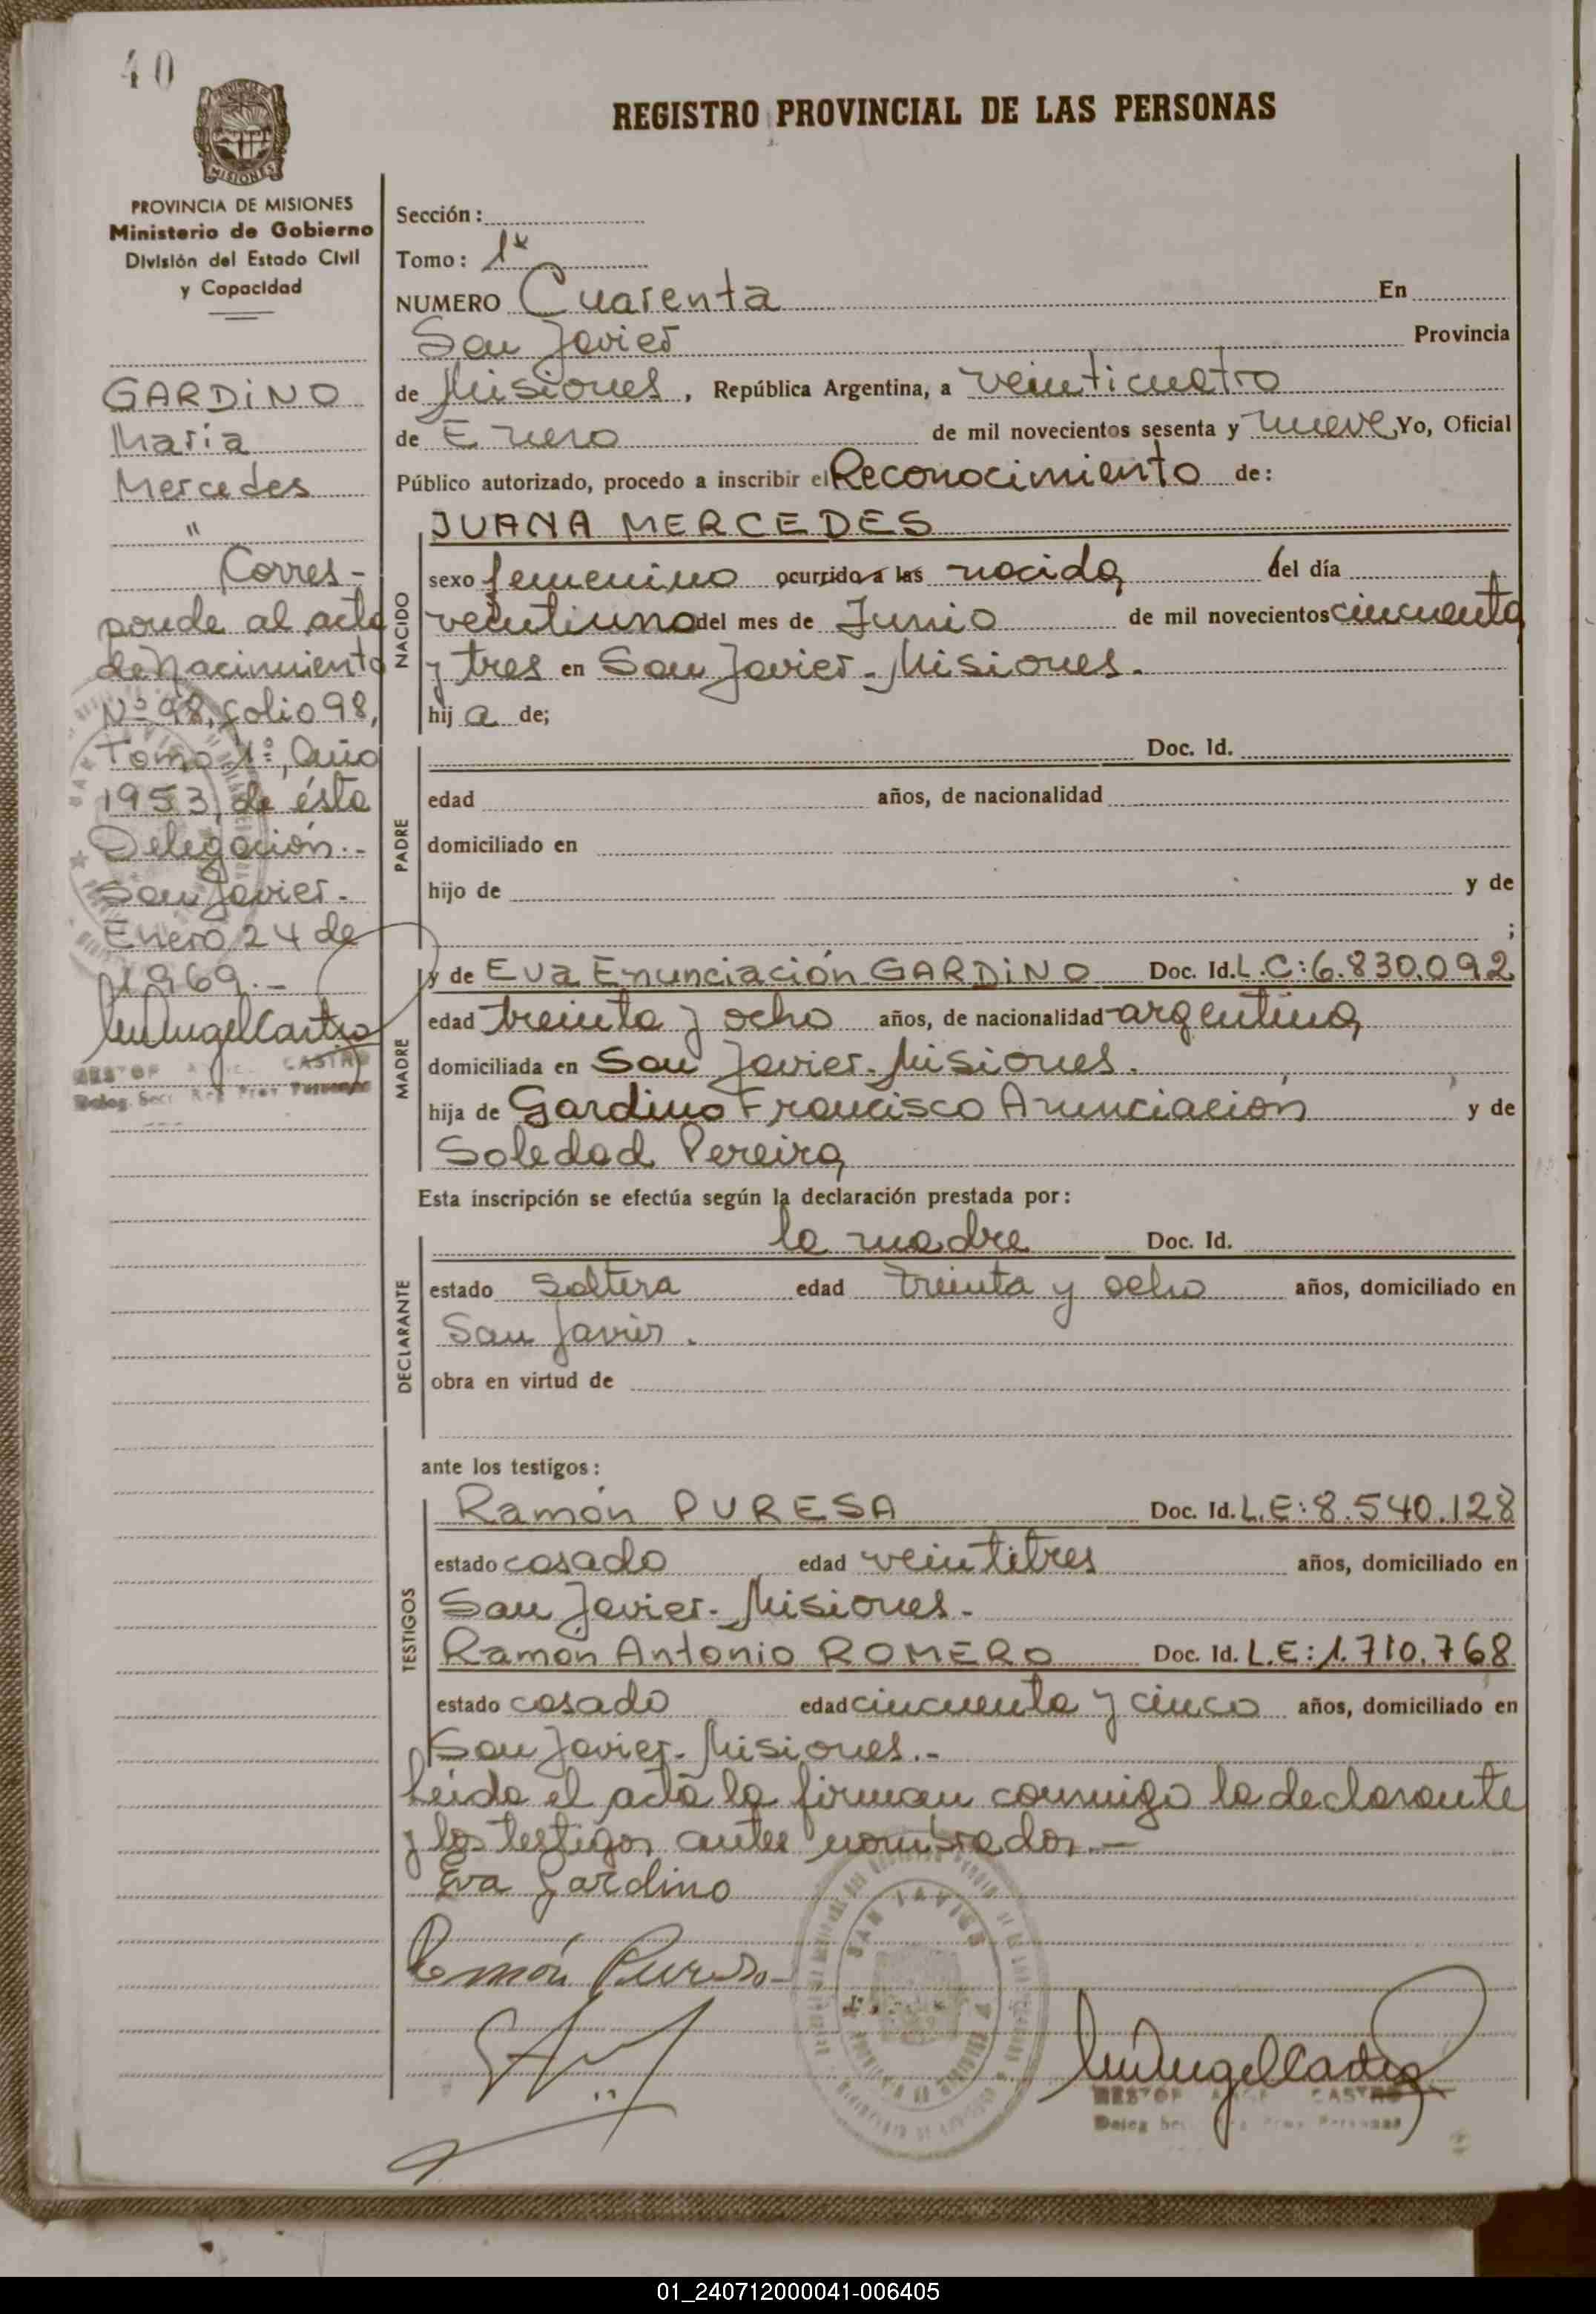 40
REGISTRO PROVINCIAL DE LAS PERSONAS
MISIONES
PROVINCIA DE MISIONES
Ministerio de Gobierno
División del Estado Civil
y Capacidad
GARDINO
María
Mercedes
"
Corres-
ponde al acta
de Nacimiento
Nº 98, folio 98,
Tomo 1º, Año
1953, de ésta
Delegación.-
San Javier.-
Enero 24 de
1969.-
CASTRO
Deleg. Secc. Reg. Prov. Personas
Sección:
Tomo: 1º
NUMERO Cuarenta En
San Javier Provincia
de Misiones, República Argentina, a veinticuatro
de Enero de mil novecientos sesenta y nueve Yo, Oficial
Público autorizado, procedo a inscribir el Reconocimiento de:
JUANA MERCEDES
NACIDO
sexo femenino ocurrido a las nacida del día
veintiuno del mes de Junio de mil novecientos cincuenta
y tres en San Javier - Misiones.
hij a de;
PADRE
Doc. Id.
edad años, de nacionalidad
domiciliado en
hijo de y de
;
MADRE
y de Eva Enunciación GARDINO Doc. Id. L.C:6.830.092
edad treinta y ocho años, de nacionalidad argentina
domiciliada en San Javier - Misiones.
hija de Gardino Francisco Anunciación y de
Soledad Pereira
Esta inscripción se efectúa según la declaración prestada por:
DECLARANTE
la madre Doc. Id.
estado soltera edad treinta y ocho años, domiciliado en
San Javier.
obra en virtud de
ante los testigos:
TESTIGOS
Ramón PURESA Doc. Id. L.E:8.540.128
estado casado edad veintitres años, domiciliado en
San Javier - Misiones.
Ramón Antonio ROMERO Doc. Id. L.E:1.710.768
estado casado edad cincuenta y cinco años, domiciliado en
San Javier - Misiones.-
Leída el acta la firman conmigo la declarante
y los testigos antes nombrados.-
Eva Gardino
Ramón Puresa
SAN JAVIER
CASTRO
Deleg. Secc. Reg. Prov. Personas
01_240712000041-006405